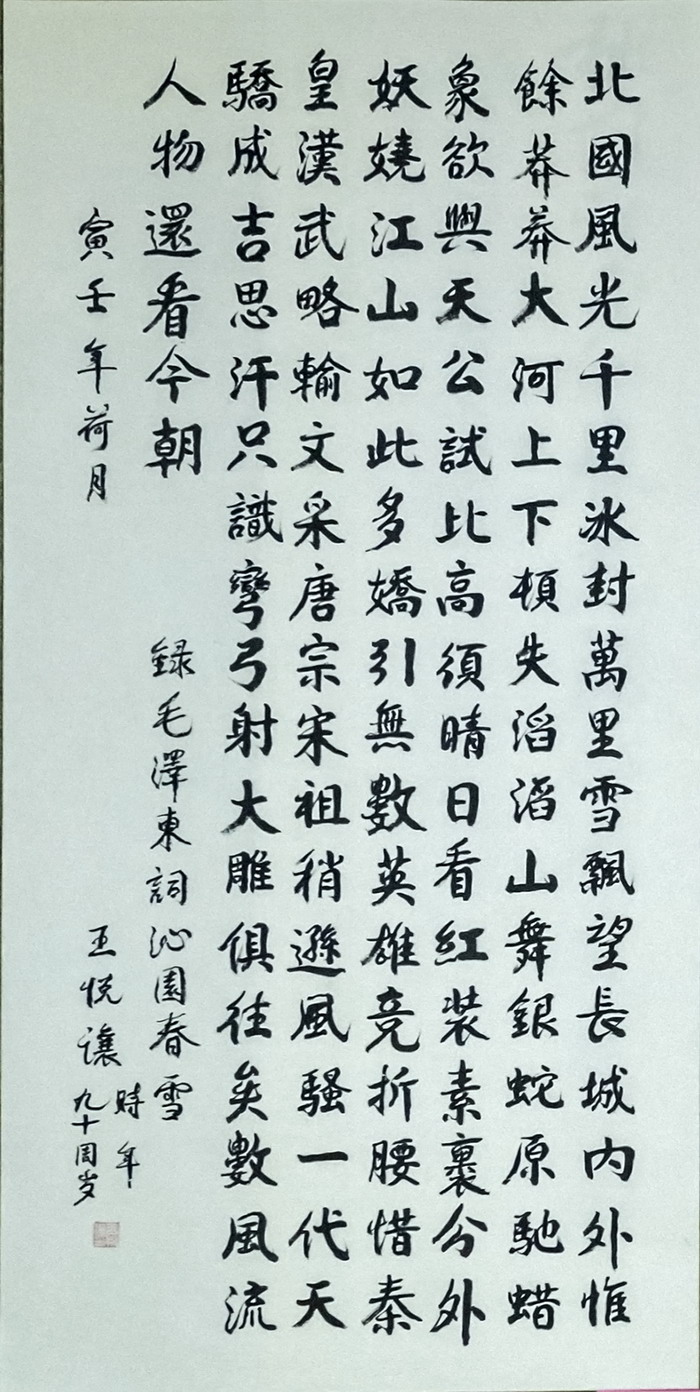 北國風光千里冰封萬里雪飄望長城内外惟
餘莽莽大河上下頓失滔滔山舞銀蛇原馳蜡
象欲與天公試比高須晴日看紅装素裹分外
妖嬈江山如此多嬌引無數英雄竞折腰惜秦
皇漢武略輸文采唐宗宋祖稍遜風騷一代天
驕成吉思汗只識彎弓射大雕俱往矣數風流
人物還看今朝
録毛澤東詞沁園春雪
寅壬年荷月
王悦讓
時年
九十周岁